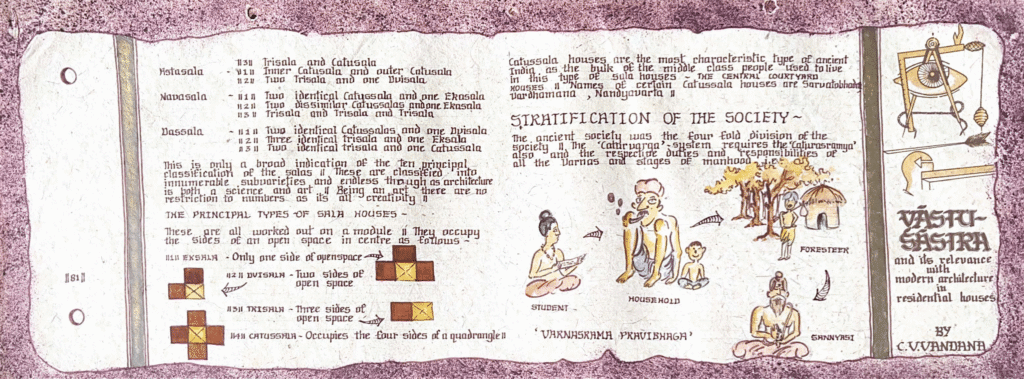 ॥3॥ Trisala and Catusala
Astasala - ॥1॥ Inner Catusala and outer Catusala
॥2॥ Two Trisala and one Dvisala
Navasala - ॥1॥ Two identical Catussala and one Ekasala
॥2॥ Two dissimilar Catussalas and one Ekasala
॥3॥ Trisala and Trisala and Trisala
Dassala - ॥1॥ Two identical Catussalas and one Dvisala
॥2॥ Three identical trisala and one Eksala
॥3॥ Two identical trisala and one Catussala
This is only a broad indication of the ten principal
classification of the salas ॥ These are classified into
innumerable subvarieties and endless though as architecture
is both a science and art ॥ Being an art there are no
restriction to numbers as its all creativity ॥
THE PRINCIPAL TYPES OF SALA HOUSES -
These are all worked out on a module ॥ They occupy
the sides of an open space in centre as follows -
॥1॥ EKSALA - Only one side of openspace
॥2॥ DVISALA - Two sides of
open space
॥3॥ TRISALA - Three sides of
open space
॥4॥ CATUSSALA - Occupies the four sides of a quadrangle ॥
॥81॥
Catussala houses are the most characteristic type of ancient
India, as the bulk of the middle class people used to live
in this type of sula houses - THE CENTRAL COURTYARD
HOUSES ॥ Names of certain Catussala houses are Sarvatobhadra
Vardhamana , Nandyavarta ॥
STRATIFICATION OF THE SOCIETY ~
The ancient society was the four fold division of the
society ॥ The 'Caturvarga' - system requires the 'Caturasramya'
also - and the respective duties and responsibilities of
all the Varnas and stages of manhood ॥
STUDENT -
HOUSEHOLD
FORESTEER
SANNYASI
'VARNASRAMA PRAVIBHAGA'
VĀSTU-
SĀSTRA
and its relevance
with
modern architecture
in
residential houses
BY
C.V.VANDANA